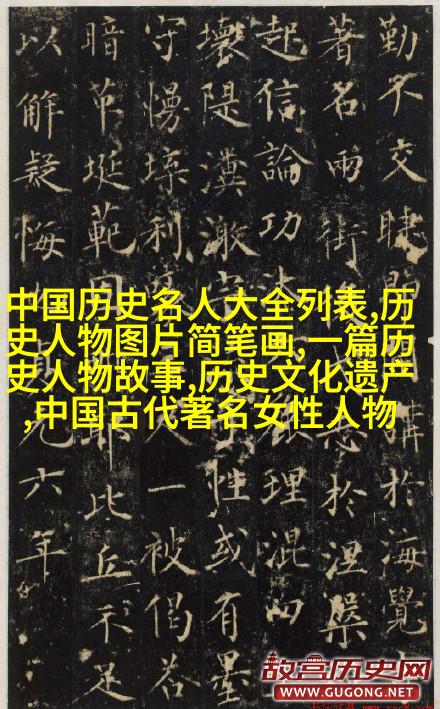 勤不交睫講於海覺
著名兩街於涅槃
起信論功理混四
壞隄潰激性或有墨
守慢利人一被偈若
暗埏範耶比丘不足
以解疑悔六年
中国历史名人大全列表,历
史人物图片简笔画,一篇历
史人物故事,历史文化遗产
,中国古代著名女性人物
故宫历史网
WWW.GUGONG.NET